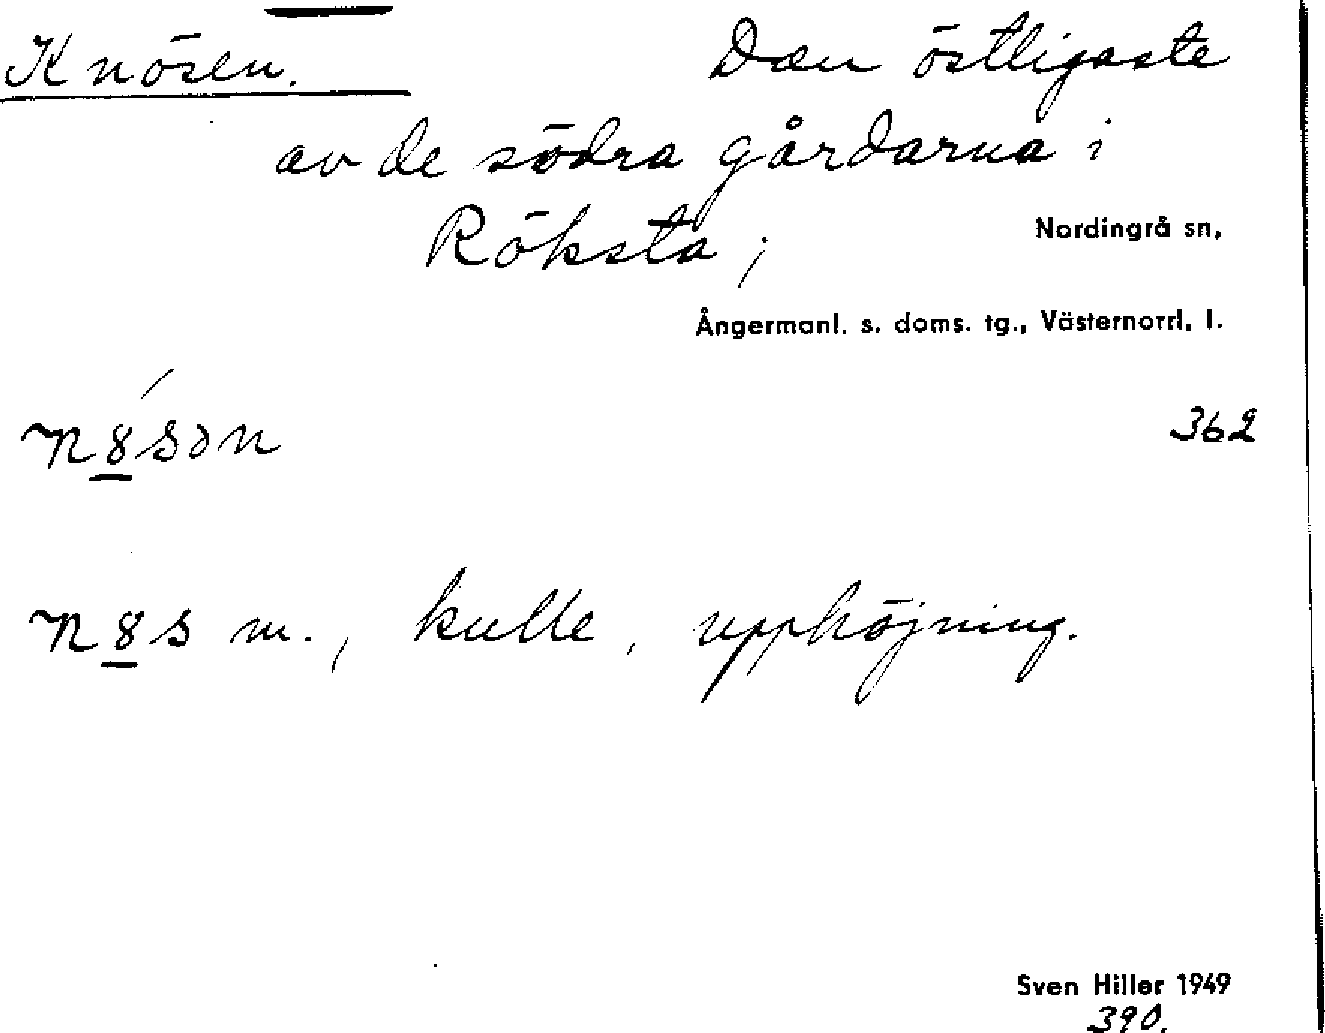 Knösen. Den östligaste
av de södra gårdarna i
Röksta; Nordingrå sn,
Ångermanl. s. doms. tg., Västernorrl. l.
n8́sən 362
n8s m., kulle, upphöjning.
Sven Hiller 1949
390.